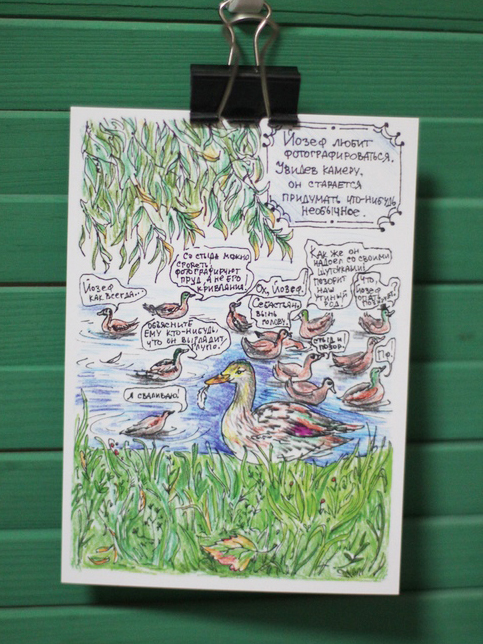 Йозеф любит
фотографироваться.
Увидев камеру,
он старается
придумать что-нибудь
необычное.
Йозеф
как всегда...
Со стыда можно
сгореть!
фотографируют
пруд, а не его
кривляния.
Ох, Йозеф!
Себастьян,
вынь
голову.
Как же он
надоел со своими
шутками!
Позорит
наш
утиный
род.
Что,
Йозеф
опять
Объясните
ему кто-нибудь,
что он выглядит
глупо.
Стыд и
позор.
Пф.
Я сваливаю!